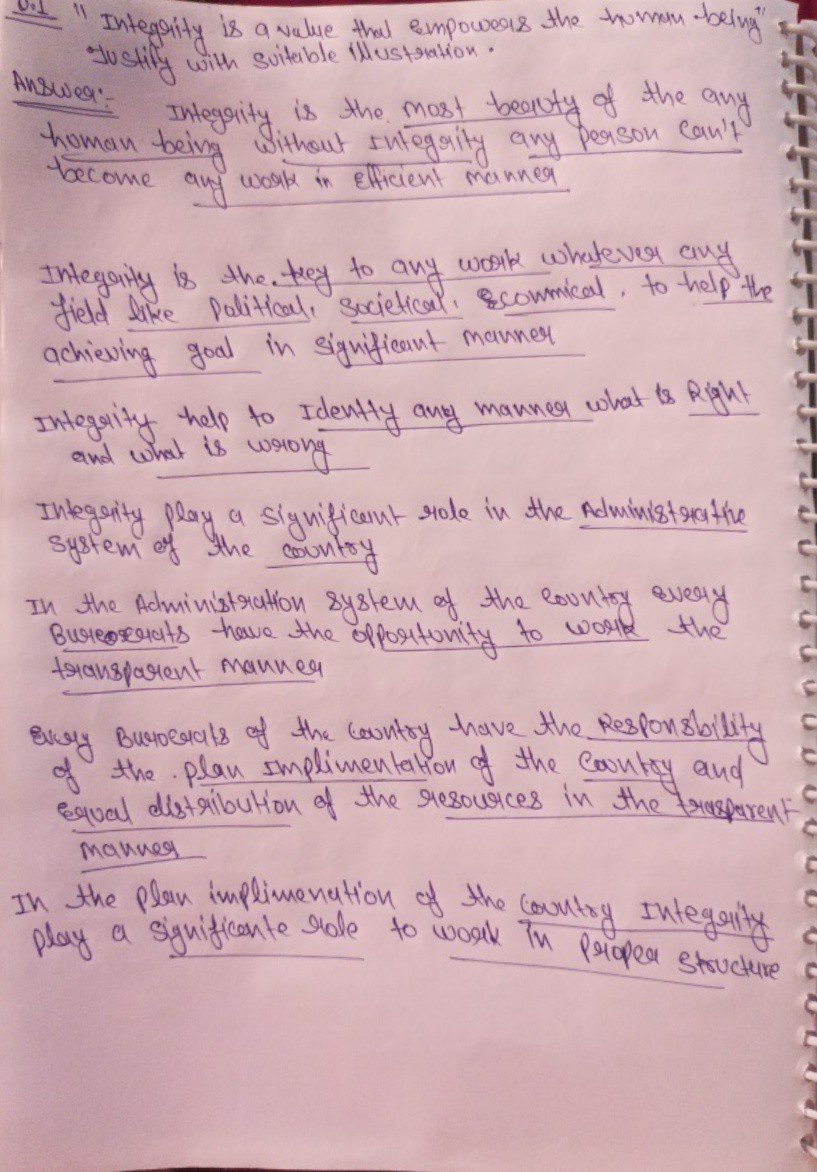 Q.1 " Integrity is a value that empowers the human being"
Justify with suitable illustration.
Answer:- Integrity is the most beauty of the any
human being without integrity any person can't
become any work in efficient manner
Integrity is the key to any work whatever any
field like political, societical, economical, to help the
achieving goal in significant manner
Integrity help to Identty any manner what is Right
and what is wrong
Integrity play a significant role in the Administrative
system of the country
In the Administration system of the country every
Bureocrats have the opportunity to work the
transparent manner
Every Burocrats of the country have the Responsbility
of the plan implimentation of the country and
equal distribution of the resources in the trasparent
manner
In the plan implimenation of the country Integrity
play a significante role to work in proper structure